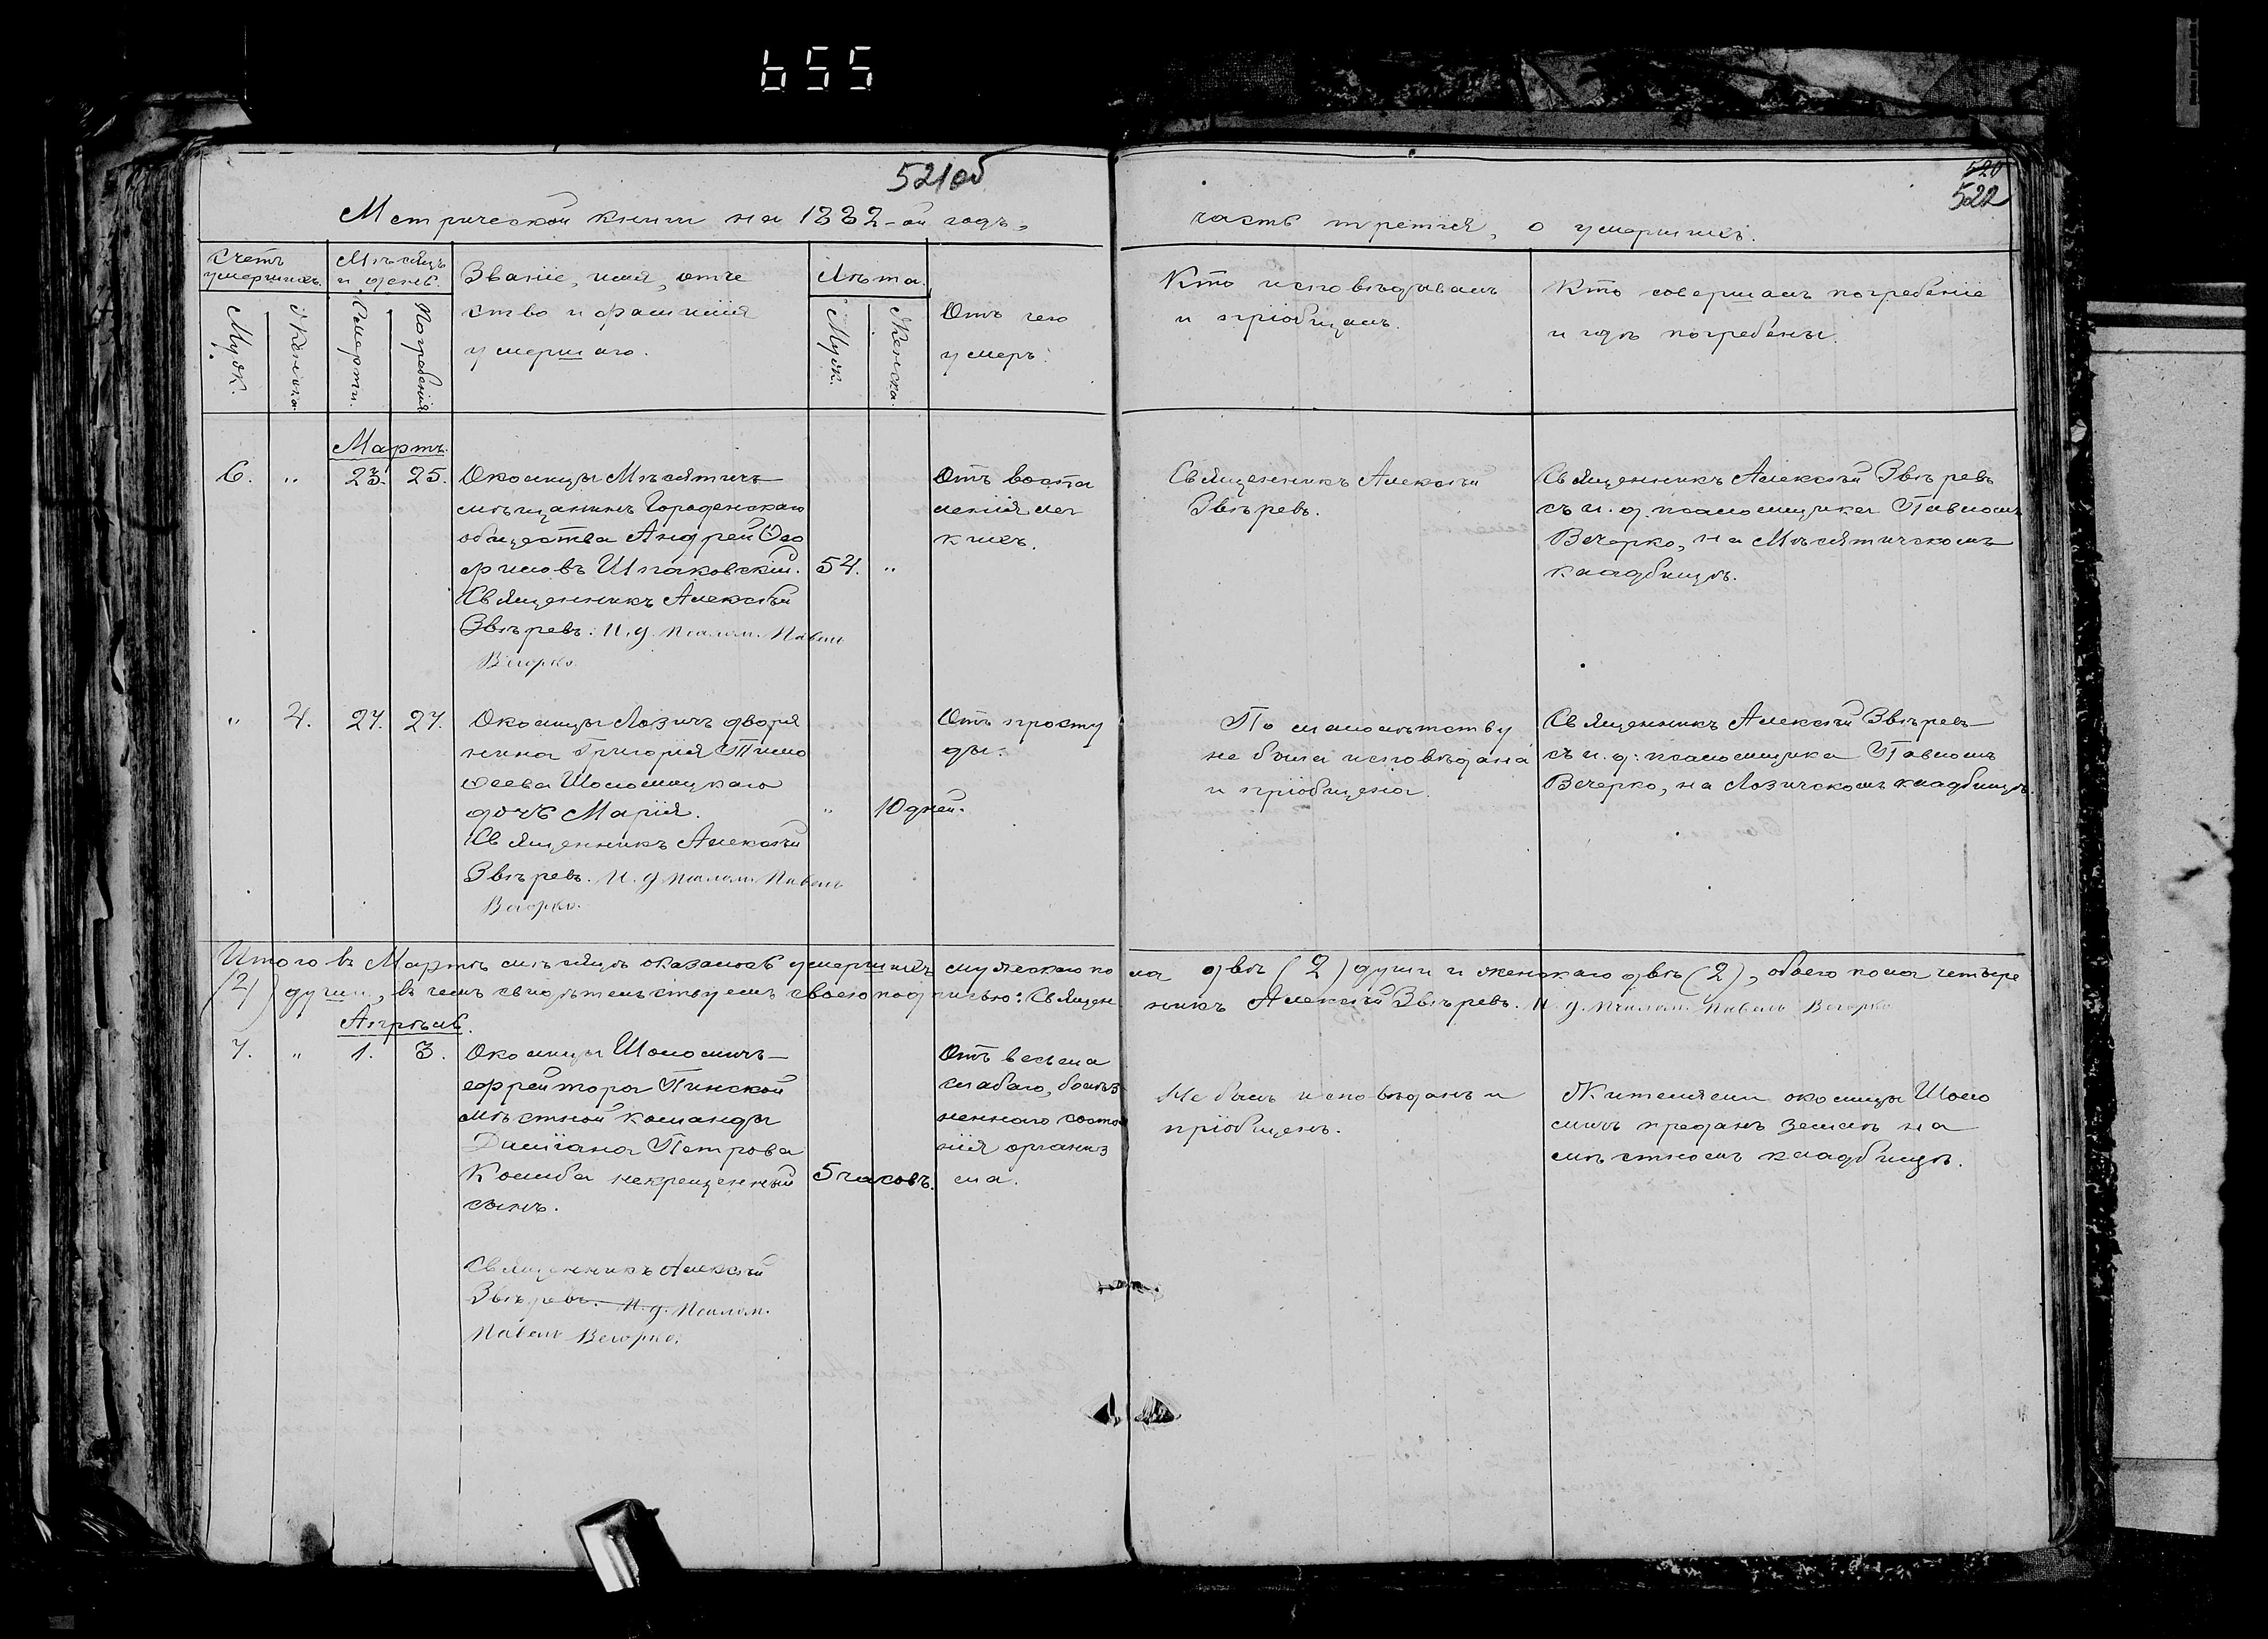 655
521об
520
522
Метрической книги на 1882-ой годъ,
часть третія, о умершихъ.
Счетъ умершихъ.
Мѣсяцъ и день.
Званіе, имя, отче
ство и фамилія
умершаго.
Лѣта
Отъ чего
умеръ.
Кто исповѣдывалъ
и пріобщалъ.
Кто совершалъ погребеніе
и гдѣ погребены.
Муж.
Женска.
Смерти.
Погребенія
Муж.
Женска.
Мартъ.
6. " 23. 25. Околицы Мѣсятичъ
мѣщанинъ Городенскаго
общества Андрей Ѳео
филовъ Шпаковскій. 54. "
Священникъ Алексѣй
Звѣревъ. И. д. псалом. Павелъ
Вечорко.
Отъ воспа
ленія лег
кихъ.
Священникъ Алексѣй
Звѣревъ.
Священникъ Алексѣй Звѣревъ
съ и. д. псаломщика Павломъ
Вечорко, на Мѣсятичскомъ
кладбищѣ.
" 2. 27. 27. Околицы Лозичъ дворя
нина Григорія Тимо
ѳеева Шоломицкаго
дочь Марія. " 10 дней.
Священникъ Алексѣй
Звѣревъ. И. д. псалом. Павелъ
Вечорко.
Отъ просту
ды.
По малолѣтству
не была исповѣдана
и пріобщена.
Священникъ Алексѣй Звѣревъ
съ и. д. псаломщика Павломъ
Вечерко, на Лозичскомъ кладбищѣ.
Итого въ Мартѣ мѣсяцѣ оказалось умершихъ мужескаго по
ла двѣ (2) души и женскаго двѣ (2), обоего пола четыре
(4) души, въ чемъ свидѣтельствуемъ своею подписью: Священ
никъ Алексѣй Звѣревъ. И. д. псалом. Павелъ Вечорко
Апрѣль.
7. " 1. 3. Околицы Шоломичъ
ефрейтора Пинской
мѣстной команды
Даміана Петрова
Колба некрещенный 5 часовъ.
сынъ.
Священникъ Алексѣй
Звѣревъ. И. д. псалом.
Павелъ Вечорко.
Отъ весьма
слабаго, болѣз
неннаго состоя
нія организ
ма.
Не былъ исповѣданъ и
пріобщенъ.
Жителями околицы Шоло
мичъ преданъ землѣ на
мѣстномъ кладбищѣ.